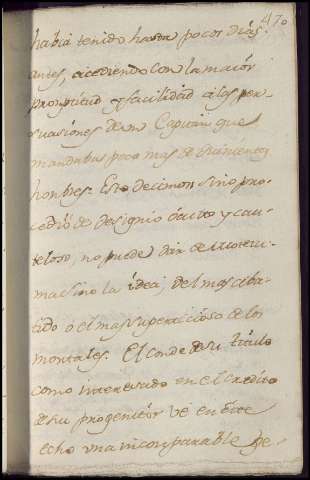 470
había tenido hasta pocos días
antes, accediendo con la maior
promptitud y facilidad a las per-
suasiones de un Capitan que
mandaba poco mas de
hombres. Esto decimos sino pro-
cedió de designio ócuto y cau-
teloso, no puede dar de
mas sino la idea, del mas
tido o el mas de los
mortales. El conde de su titulo
como interesado en el credito
de su progenitór vé en este
echo una incomparable ge-